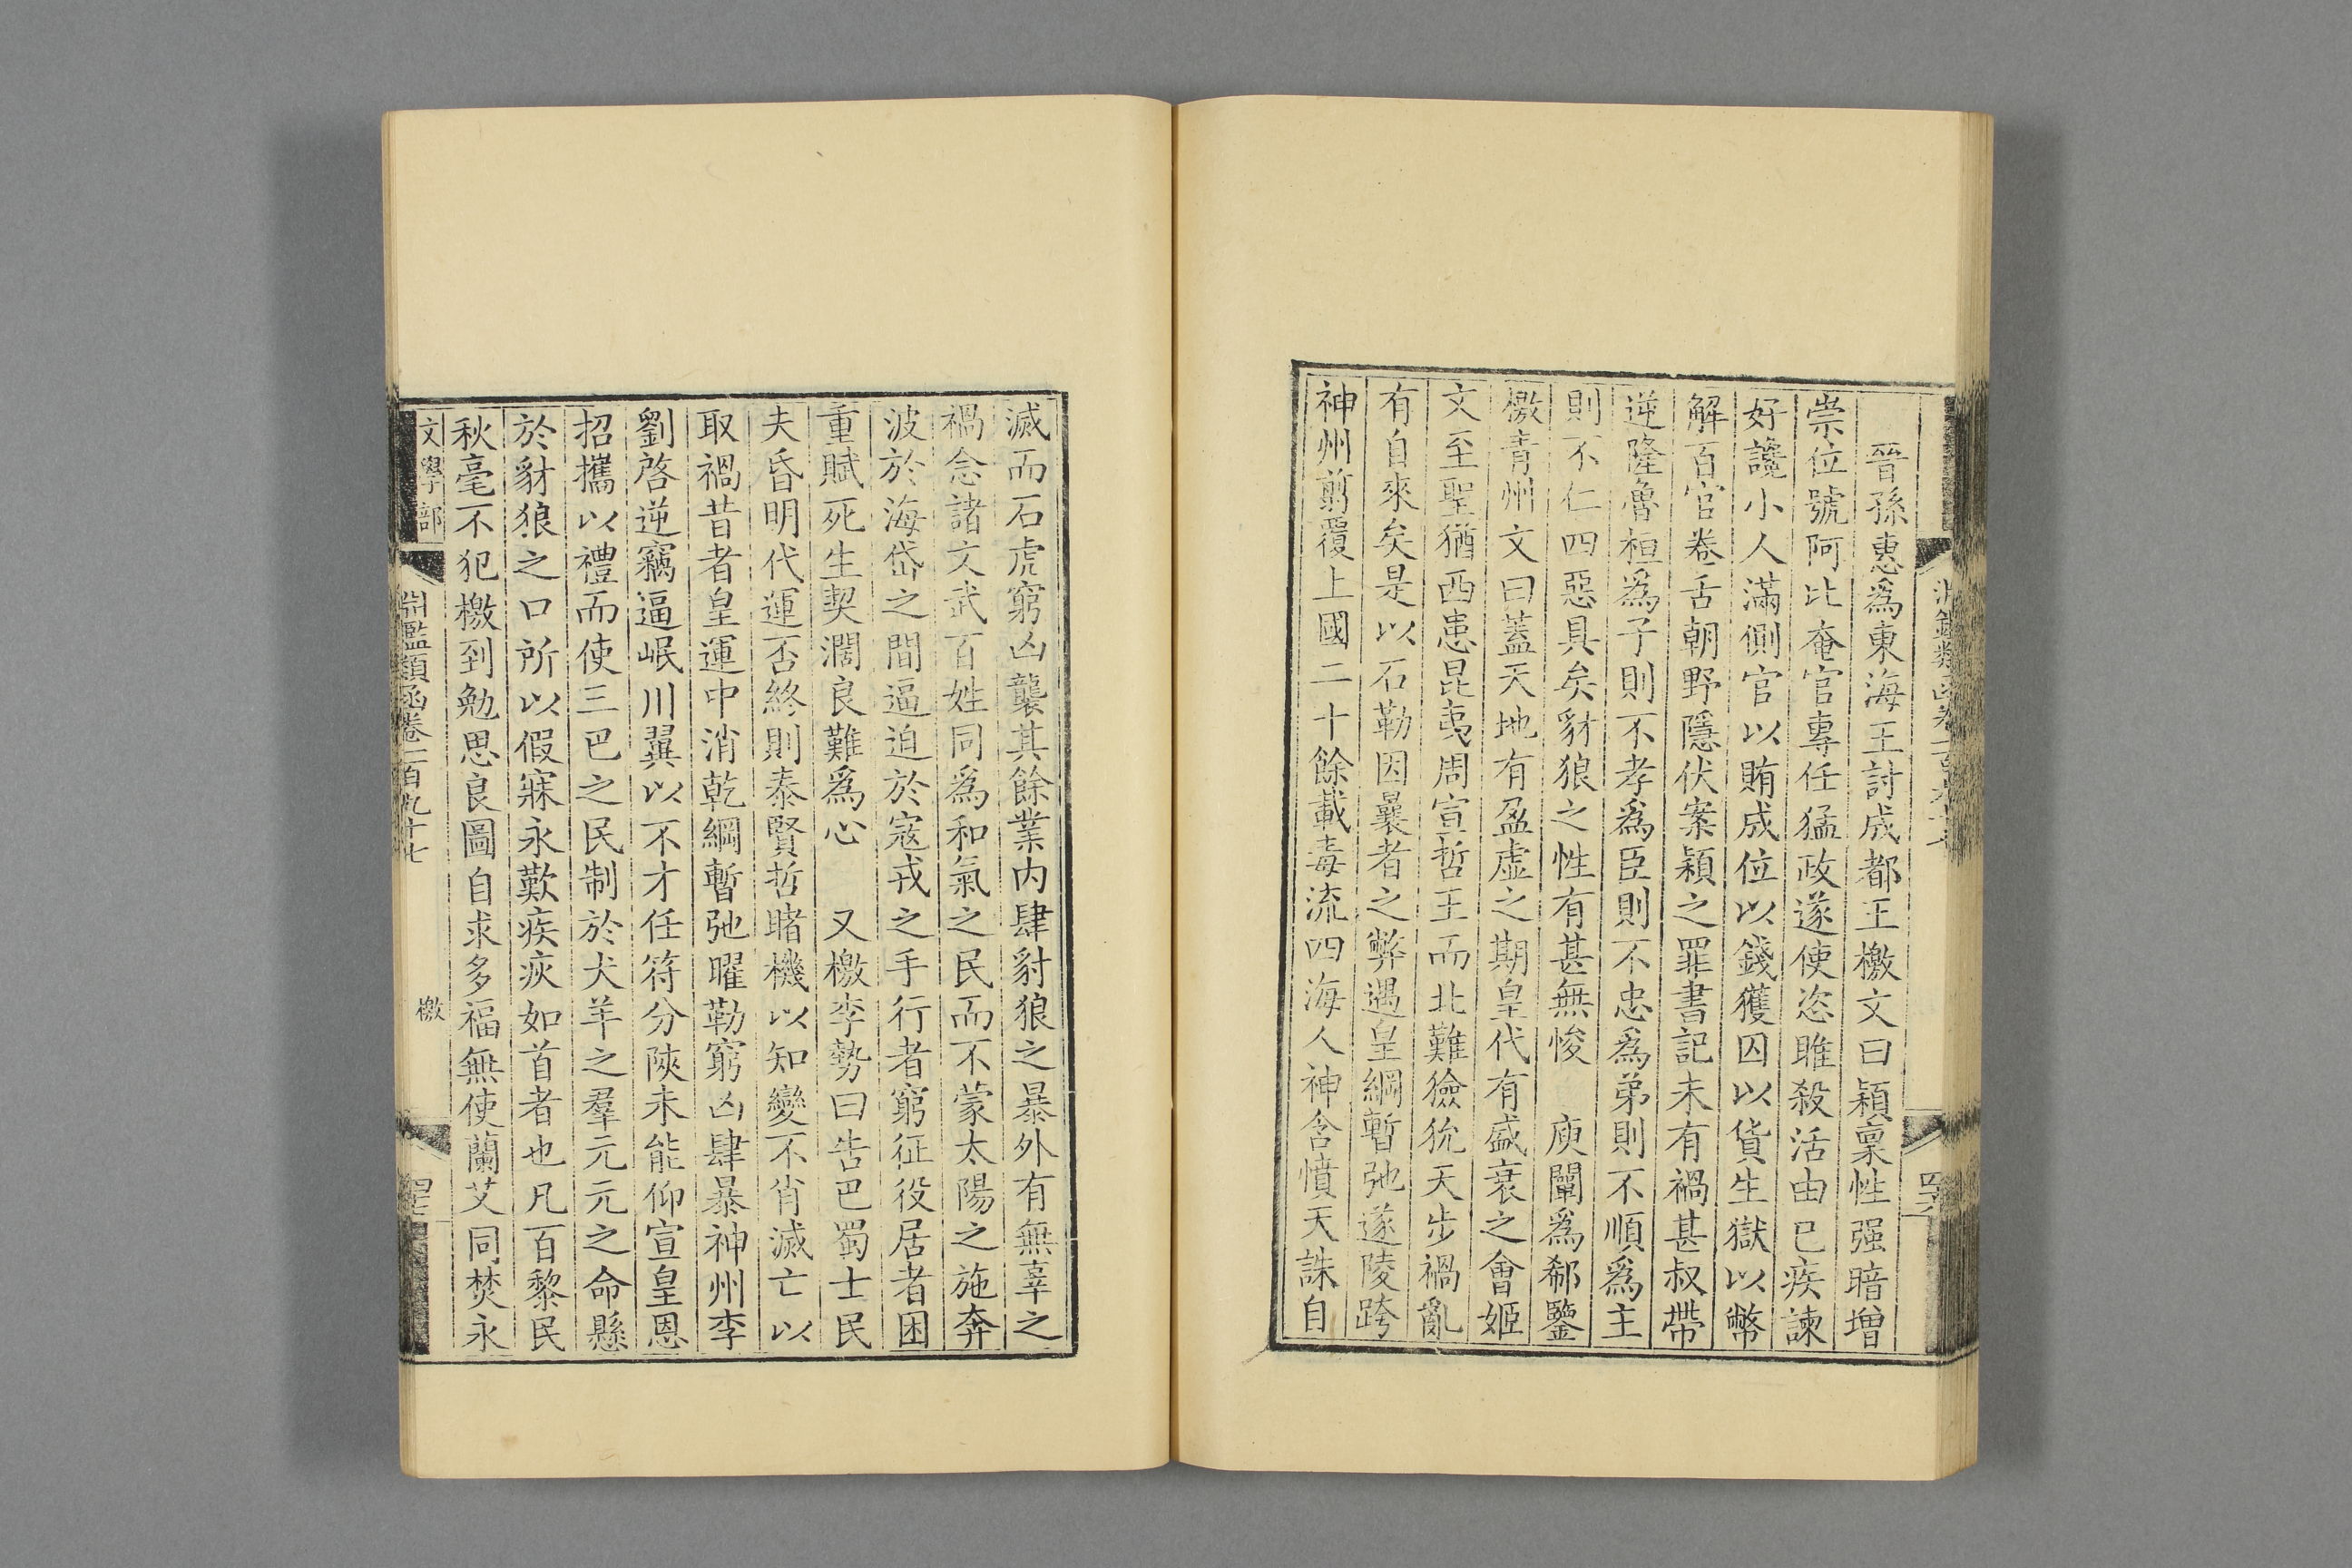 晉孫惠爲東海王討成都王檄文曰穎稟性强暗增
崇位號阿比奄官專任猛政遂使恣睢殺活由已疾諫
好讒小人滿側官以賄成位以錢獲囚以貨生獄以幣
解百官卷舌朝野隱伏案穎之罪書記未有禍甚叔帶
逆隆魯桓爲子則不孝爲臣則不忠爲弟則不順爲主
則不仁四惡具矣豺狼之性有甚無悛　庾闡爲郗鑒
檄青州文曰蓋天地有盈虛之期皇代有盛衰之會姬
文至聖猶西患昆夷周宣哲王而北難獫狁天步禍亂
有自來矣是以石勒因曩者之弊遇皇綱暫弛遂陵跨
神州剪覆上國二十餘載毒流四海人神含憤天誅自
滅而石虎窮凶襲其餘業内肆豺狼之暴外有無辜之
禍念諸文武百姓同爲和氣之民而不蒙太陽之施奔
波於海岱之間逼迫於寇戎之手行者窮征役居者困
重賦死生契濶良難爲心　又檄李勢曰告巴蜀士民
夫昏明代運否終則泰賢哲睹機以知變不肖滅亡以
取禍昔者皇運中消乾綱暫弛曜勒窮凶肆暴神州李
劉啓逆竊逼岷川翼以不才任符分陝未能仰宣皇恩
招攜以禮而使三巴之民制於犬羊之羣元元之命懸
於豺狼之口所以假寐永歎疾疢如首者也凡百黎民
秋毫不犯檄到勉思良圖自求多福無使蘭艾同焚永
文學部
淵鑑類函卷一百九十七
檄